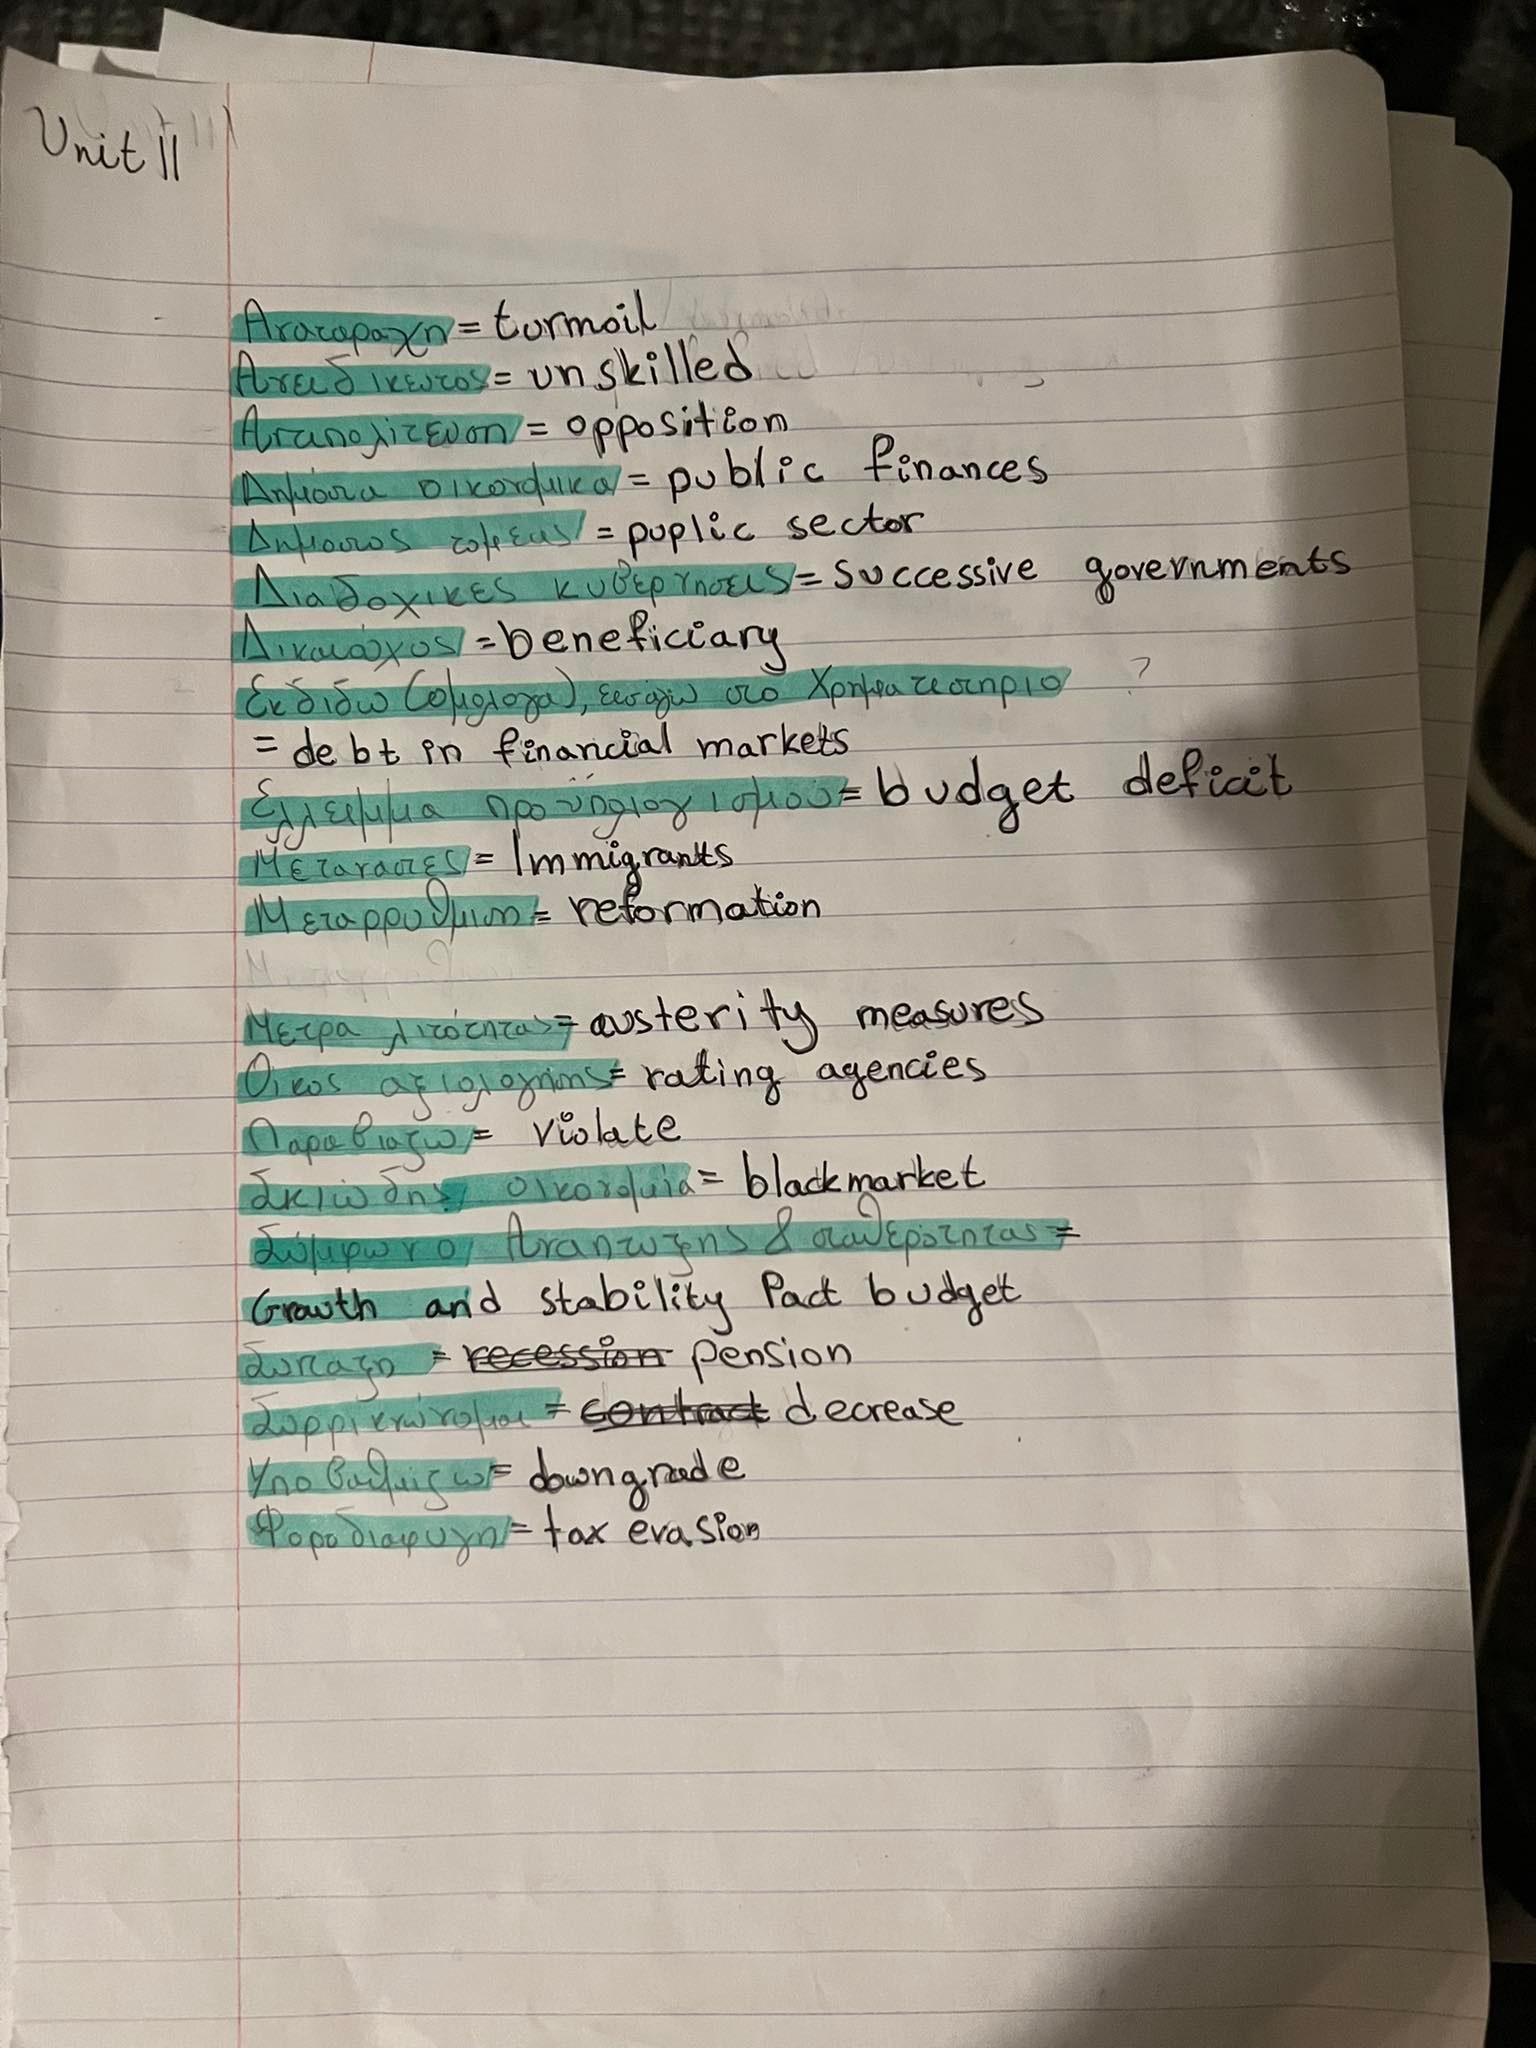 Unit 11
Αναταραχη = turmoil
Ανειδικευτος = unskilled
Αντιπολιτευση = opposition
Δημόσια οικονομικα = public finances
Δημοσιος τομεας = puplic sector
Διαδοχικες κυβερνησεις = successive governments
Δικαιούχος = beneficiary
Εκδιδω (ομολογα), εισαγω στο Χρηματιστηριο ?
= debt in financial markets
Ελλειμμα προϋπολογισμού = budget deficit
Μεταναστες = Immigrants
Μεταρρυθμιση = reformation
Μετρα λιτότητας = austerity measures
Οικος αξιολογησης = rating agencies
Παραβιαζω = violate
Σκιώδης οικονομία = blackmarket
Σύμφωνο Αναπτυξης & σταθερότητας =
Growth and stability Pact budget
Συνταξη = recession pension
Συρρικνώνομαι = contract decrease
Υποβαθμιζω = downgrade
Φοροδιαφυγη = tax evasion